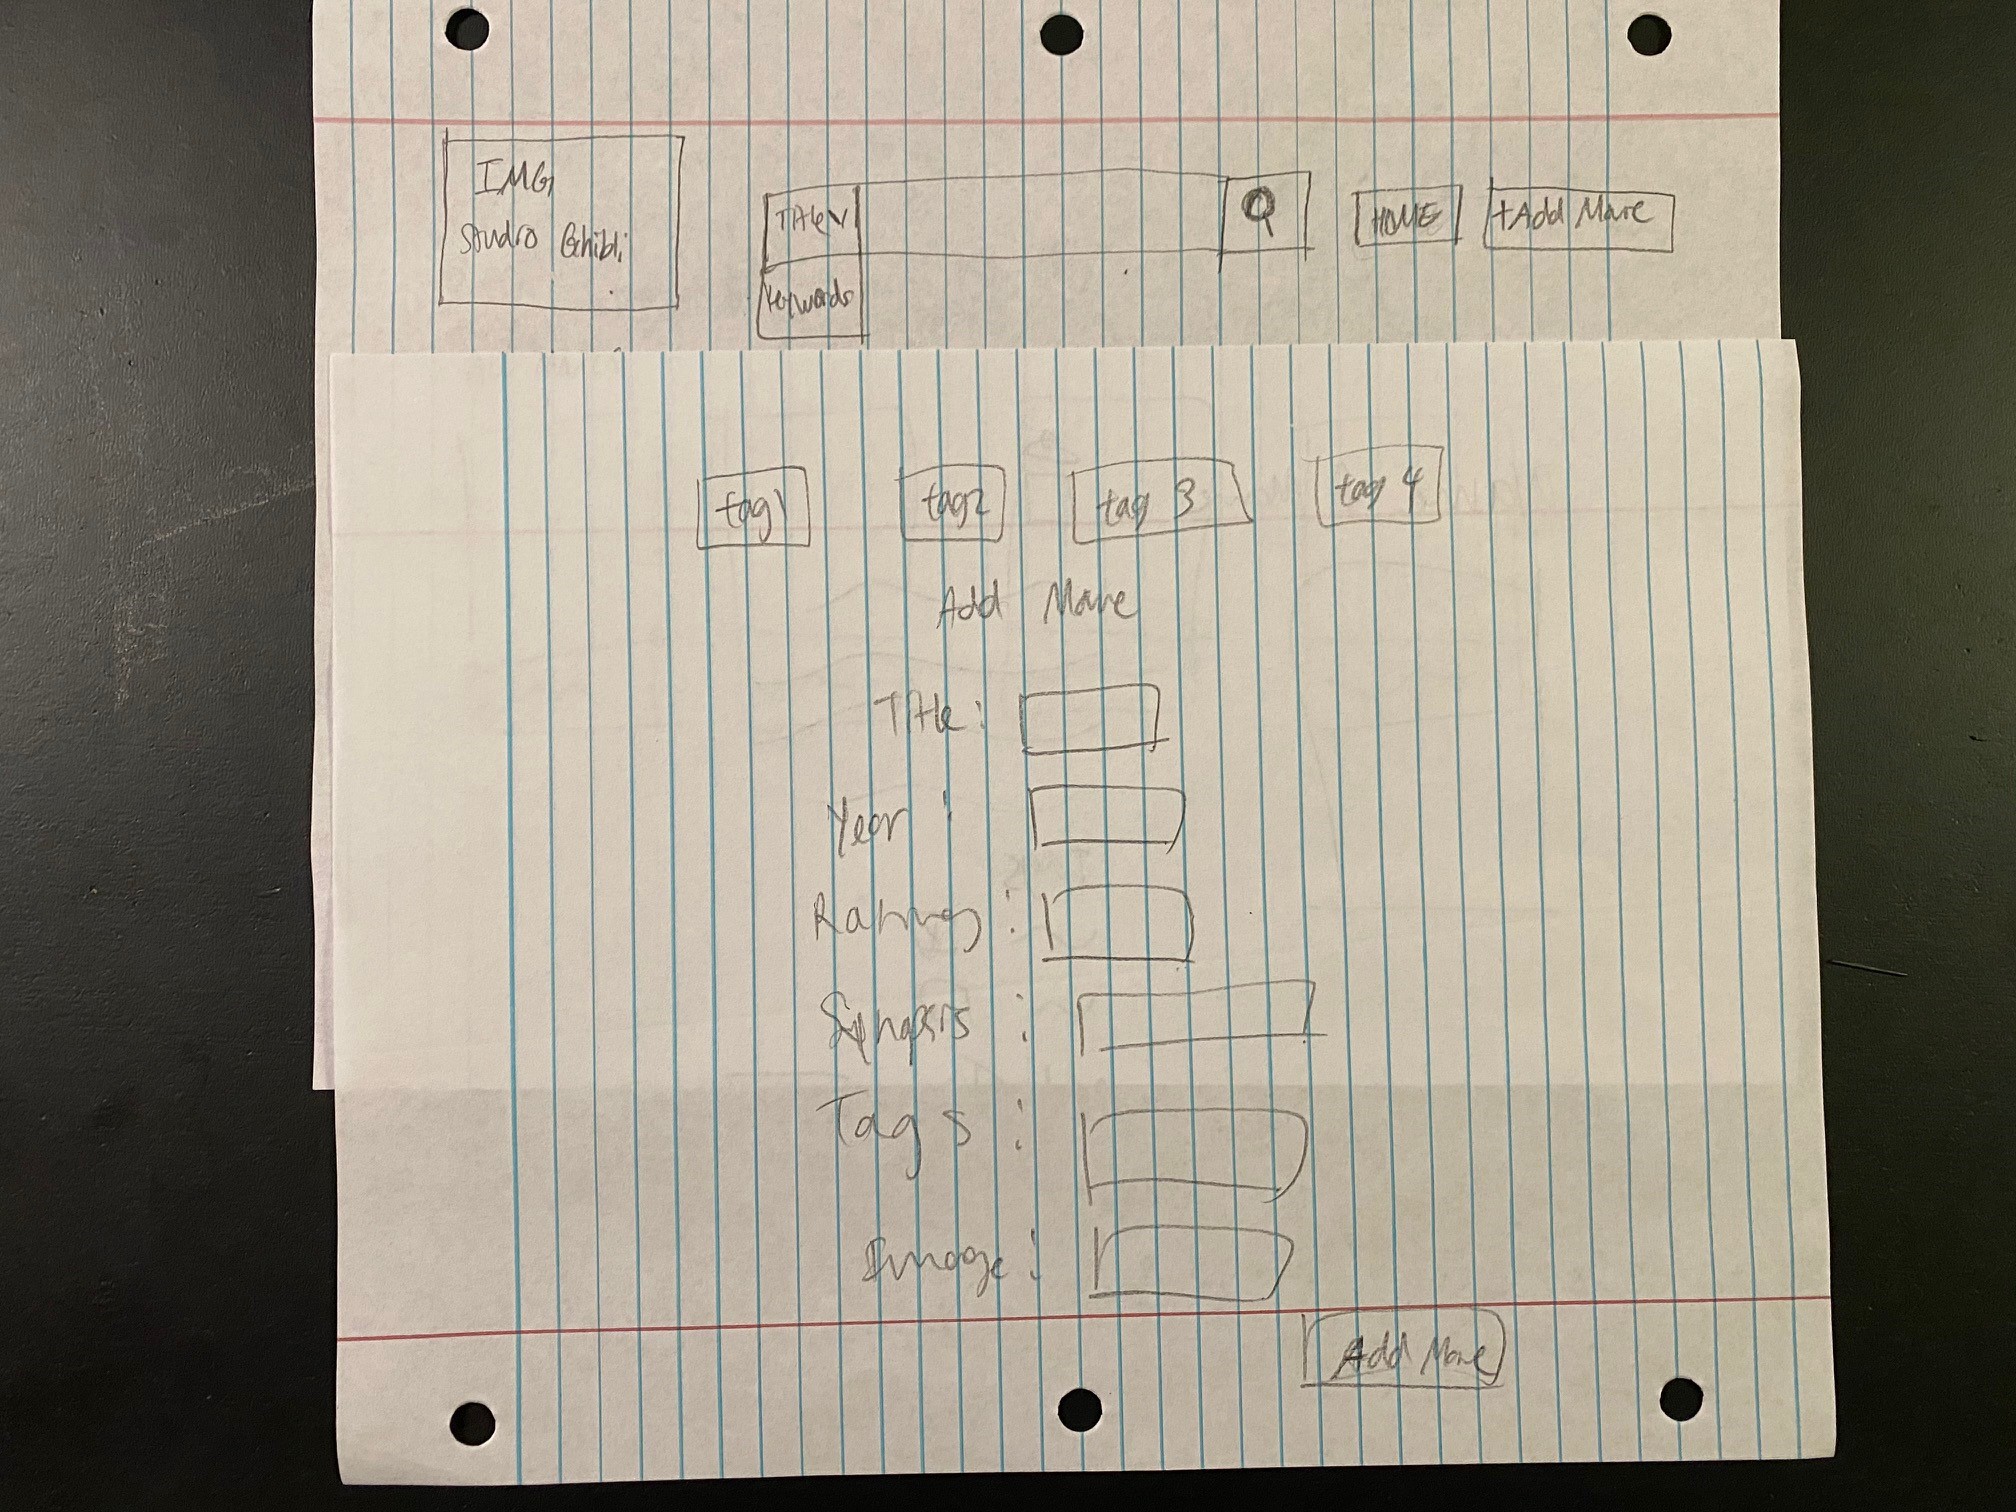 IMG
Studio Ghibli
Title v
Keywords
HOME
+Add Movie
tag1
tag2
tag 3
tag 4
Add Movie
Title:
Year :
Ratings :
Synopsis :
Tags :
Image :
Add Movie